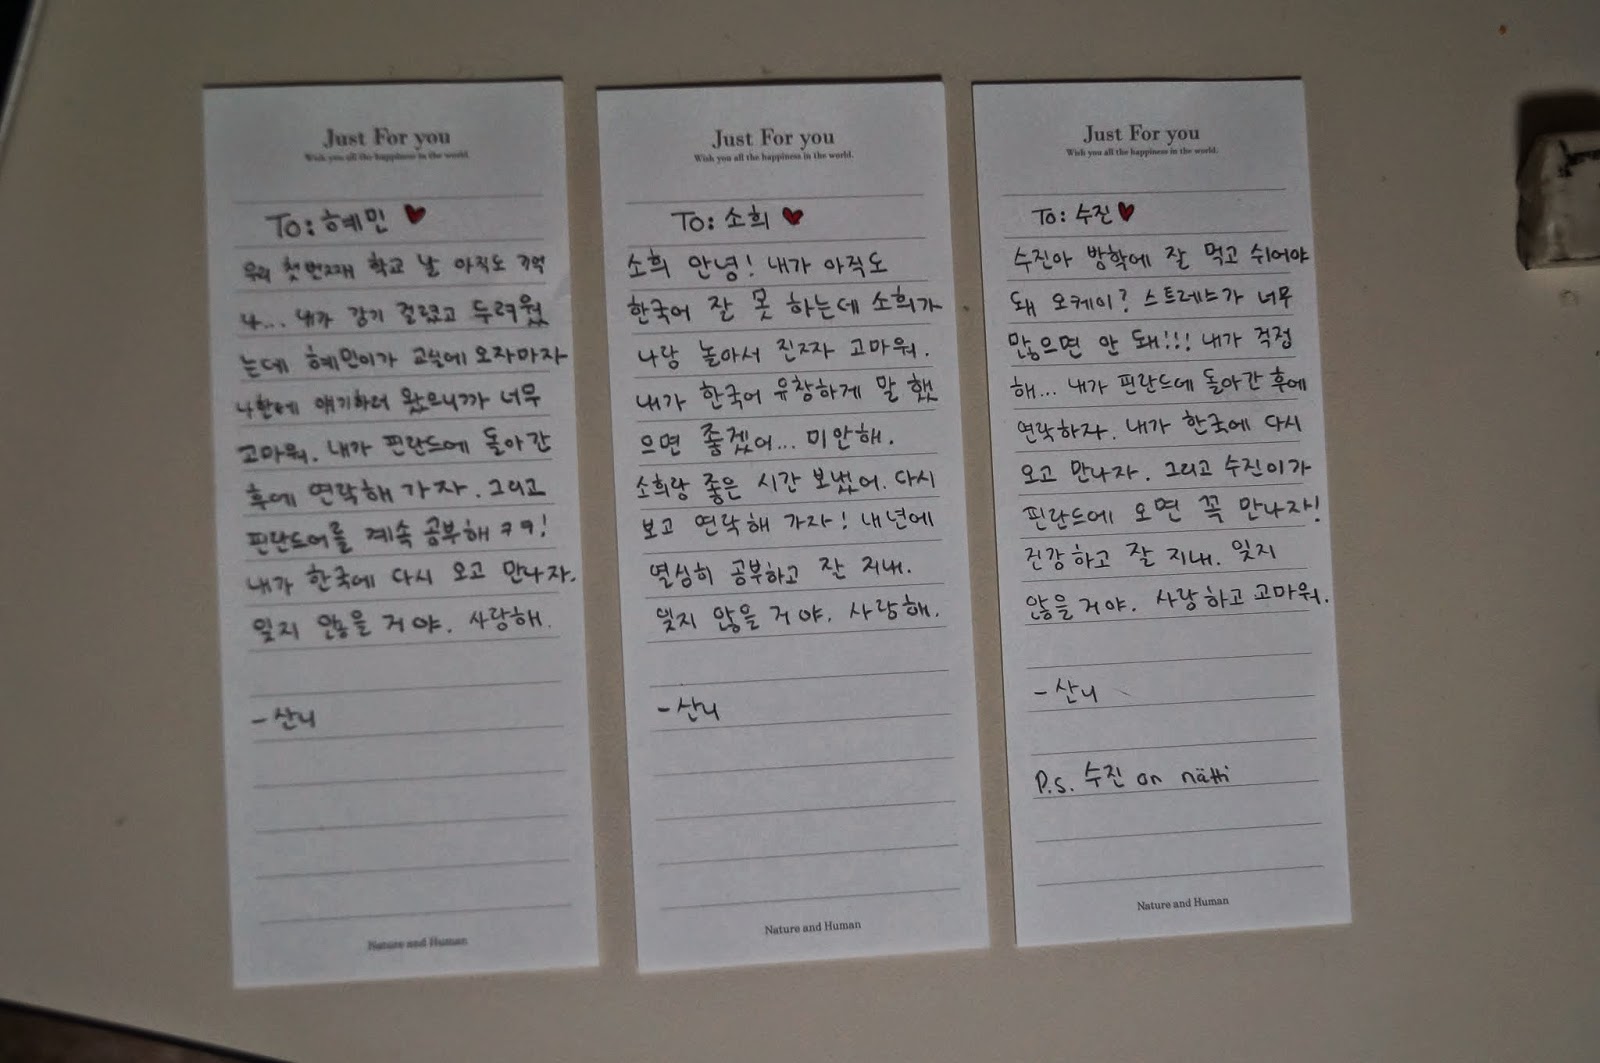 Just For you
Wish you all the happiness in the world.
To: 혜민 ♥
우리 첫번째 학교 날 아직도 기억
나... 내가 감기 걸렸고 두려웠
는데 혜민이가 교실에 오자마자
나한테 얘기하러 왔으니까 너무
고마워. 내가 핀란드에 돌아간
후에 연락해 가자. 그리고
핀란드어를 계속 공부해 ㅋㅋ!
내가 한국에 다시 오고 만나자.
잊지 않을 거야. 사랑해.
- 산니
Nature and Human
Just For you
Wish you all the happiness in the world.
To: 소희 ♥
소희 안녕! 내가 아직도
한국어 잘 못 하는데 소희가
나랑 놀아서 진짜 고마워.
내가 한국어 유창하게 말 했
으면 좋겠어... 미안해.
소희랑 좋은 시간 보냈어. 다시
보고 연락해 가자! 내년에
열심히 공부하고 잘 지내.
잊지 않을 거야. 사랑해.
- 산니
Nature and Human
Just For you
Wish you all the happiness in the world.
To: 수진 ♥
수진아 방학에 잘 먹고 쉬어야
돼 오케이? 스트레스가 너무
많으면 안 돼!!! 내가 걱정
해... 내가 핀란드에 돌아간 후에
연락하자. 내가 한국에 다시
오고 만나자. 그리고 수진이가
핀란드에 오면 꼭 만나자!
건강하고 잘 지내. 잊지
않을거야. 사랑하고 고마워.
- 산니
P.s. 수진 on nätti
Nature and Human